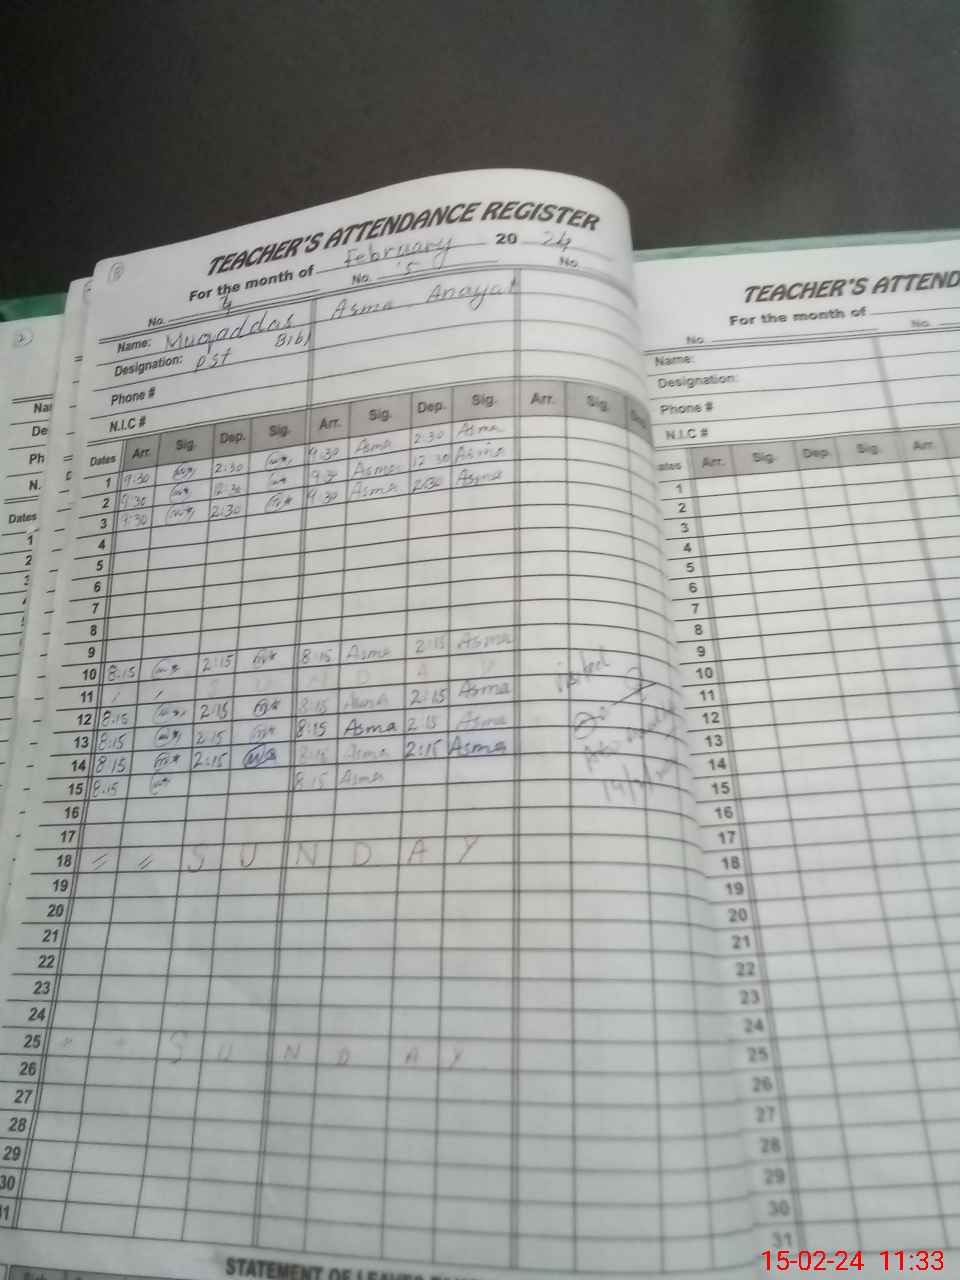 TEACHER'S ATTENDANCE REGISTER
For the month of February 20 24
No. 4 No. 5 No.
Name: Muqaddas Bibi Asma Anayat
Designation: PST
Phone #
N.I.C #
Dates Arr. Sig. Dep. Sig. Arr. Sig. Dep. Sig. Arr. Sig.
1 9:30 2:30 9:30 Asma 2:30 Asma
2 9:30 12:30 9:30 Asma 12:30 Asma
3 9:30 2:30 9:30 Asma 2:30 Asma
4
5
6
7
8
9
10 8:15 2:15 8:15 Asma 2:15 Asma
11 S U N D A Y
12 8:15 2:15 8:15 Asma 2:15 Asma
13 8:15 2:15 8:15 Asma 2:15 Asma
14 8:15 2:15 8:15 Asma 2:15 Asma
15 8:15 8:15 Asma
16
17
18 = = S U N D A Y
19
20
21
22
23
24
25 S U N D A Y
26
27
28
29
30
31
STATEMENT OF
TEACHER'S ATTEND
For the month of
No. No.
Name:
Designation:
Phone #
N.I.C #
ates Arr. Sig. Dep. Sig. Arr.
1
2
3
4
5
6
7
8
9
10
11
12
13
14
15
16
17
18
19
20
21
22
23
24
25
26
27
28
29
30
31
Na
De
Ph
N.
Dates
1
2
15-02-24 11:33